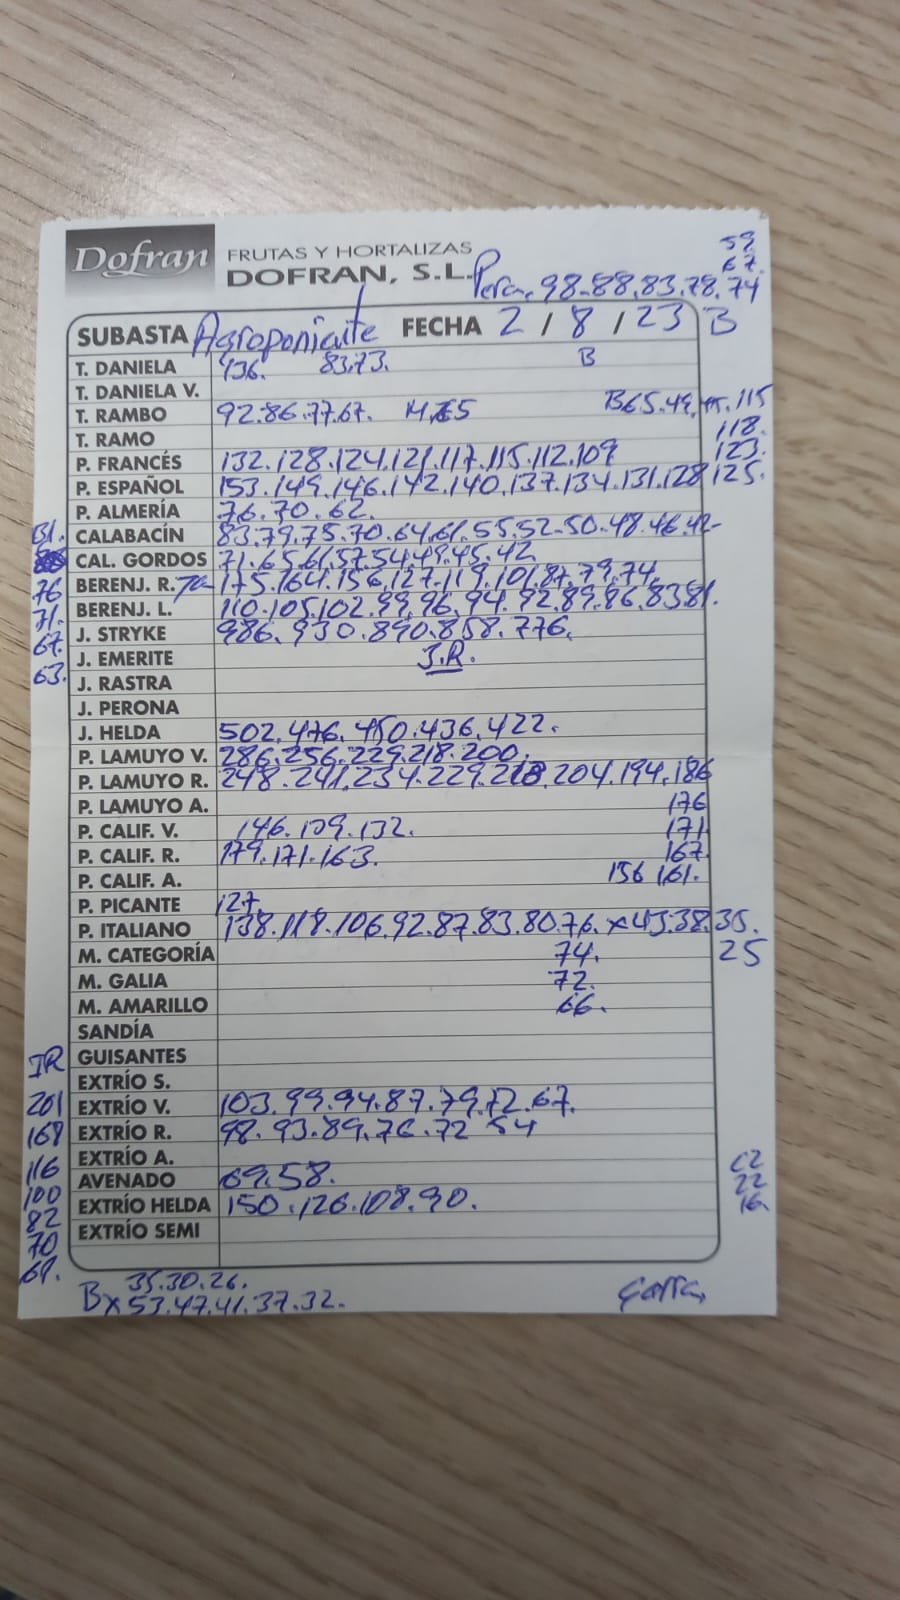 59.
67.
Dofran FRUTAS Y HORTALIZAS
DOFRAN, S.L. Pera. 98-88.83.78.74
SUBASTA Agroponiente FECHA 2 / 8 / 23 B
T. DANIELA 436. 83.73. B
T. DANIELA V.
T. RAMBO 92.86.77.67. B65.49. 115
T. RAMO 118.
P. FRANCÉS 132.128.124.121.117.115.112.109 123.
P. ESPAÑOL 153.149.146.142.140.137.134.131.128 125.
P. ALMERÍA 76.70.62.
CALABACÍN 83.79.75.70.64.61.55.52-50.48.46.42-
CAL. GORDOS 71.65.61.57.54.49.45.42
76 BERENJ. R. 175.164.156.127.119.101.87.79.74.
71. BERENJ. L. 110.105.102.99.96.94.92.89.86.83.81.
67. J. STRYKE 986.930.890.858.776.
63. J. EMERITE J.R.
J. RASTRA
J. PERONA
J. HELDA 502.476.450.436.422.
P. LAMUYO V. 286.256.229.218.200.
P. LAMUYO R. 248.241.234.229.218.204.194.186
P. LAMUYO A. 176
P. CALIF. V. 146.139.132. 171
P. CALIF. R. 179.171.163. 167.
P. CALIF. A. 156 161.
P. PICANTE 127.
P. ITALIANO 138.118.106.92.87.83.80.76. x43.38.35.
M. CATEGORÍA 74. 25
M. GALIA 72.
M. AMARILLO 66.
SANDÍA
JR GUISANTES
EXTRÍO S.
201 EXTRÍO V. 103.99.94.87.79.72.67.
EXTRÍO R. 98.93.89.76.72 54
116 EXTRÍO A.
100 AVENADO 69.58.
82 EXTRÍO HELDA 150.126.108.90.
70 EXTRÍO SEMI
22
16.
35.30.26.
B x 53.47.41.37.32.